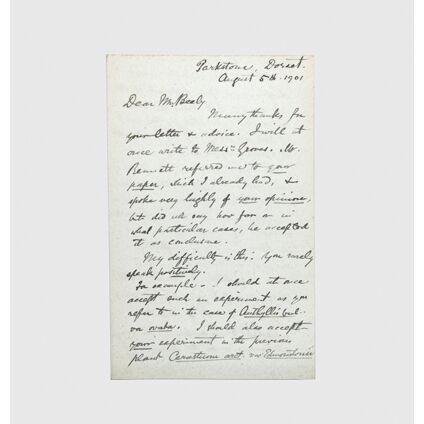 Parkstone, Dorset.
August 5th. 1901
Dear Mr. Beeby
Many thanks for
your letter & advice. I will at
once write to Messrs Groves. Mr.
Bennett referred me to your
paper, which I already had, &
spoke very highly of your opinions,
but did not say how far or in
what particular cases, he accepted
it as conclusive.
My difficulty is this: You rarely
speak positively.
For example - I should at once
accept such an experiment as you
refer to in the case of Anthyllis vul.
var ovata. I should also accept
your experiment in the previous
plant Cerastium arct. var Edmondstonii